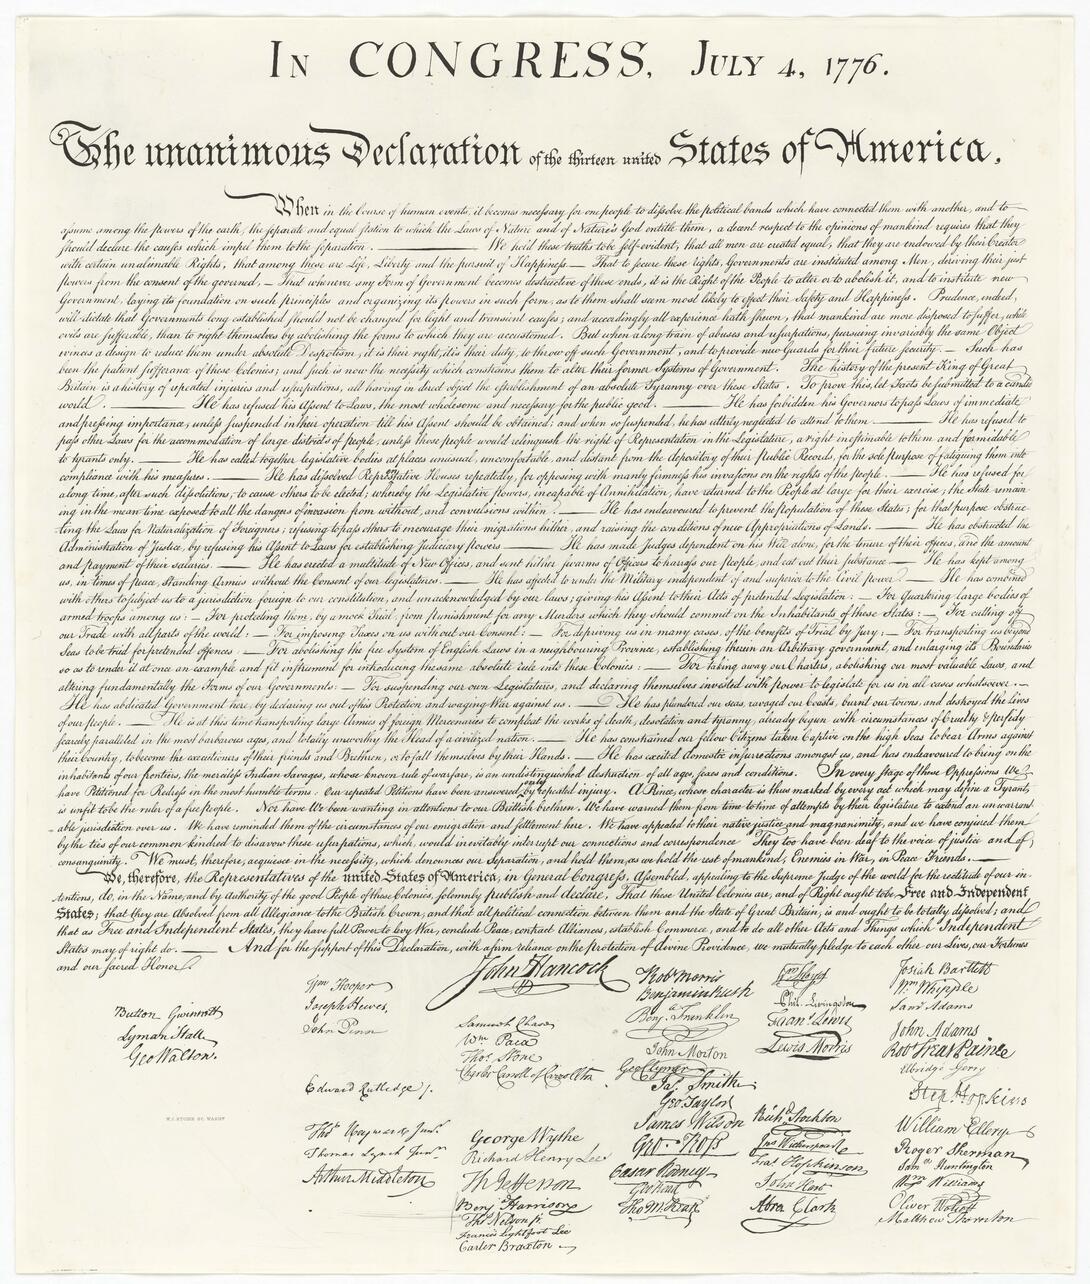 In CONGRESS, July 4, 1776.
The unanimous Declaration of the thirteen united States of America,
When in the Course of human events, it becomes necessary for one people to dissolve the political bands which have connected them with another, and to
assume among the powers of the earth, the separate and equal station to which the Laws of Nature and of Nature's God entitle them, a decent respect to the opinions of mankind requires that they
should declare the causes which impel them to the separation. — We hold these truths to be self-evident, that all men are created equal, that they are endowed by their Creator
with certain unalienable Rights, that among these are Life, Liberty and the pursuit of Happiness.— That to secure these rights, Governments are instituted among Men, deriving their just
powers from the consent of the governed, — That whenever any Form of Government becomes destructive of these ends, it is the Right of the People to alter or to abolish it, and to institute new
Government, laying its foundation on such principles and organizing its powers in such form, as to them shall seem most likely to effect their Safety and Happiness. Prudence, indeed,
will dictate that Governments long established should not be changed for light and transient causes; and accordingly all experience hath shewn, that mankind are more disposed to suffer, while
evils are sufferable, than to right themselves by abolishing the forms to which they are accustomed. But when a long train of abuses and usurpations, pursuing invariably the same Object
evinces a design to reduce them under absolute Despotism, it is their right, it is their duty, to throw off such Government, and to provide new Guards for their future security. — Such has
been the patient sufferance of these Colonies; and such is now the necessity which constrains them to alter their former Systems of Government. The history of the present King of Great
Britain is a history of repeated injuries and usurpations, all having in direct object the establishment of an absolute Tyranny over these States. To prove this, let Facts be submitted to a candid
world. — He has refused his Assent to Laws, the most wholesome and necessary for the public good. — He has forbidden his Governors to pass Laws of immediate
and pressing importance, unless suspended in their operation till his Assent should be obtained; and when so suspended, he has utterly neglected to attend to them — He has refused to
pass other Laws for the accommodation of large districts of people, unless those people would relinquish the right of Representation in the Legislature, a right inestimable to them and formidable
to tyrants only. — He has called together legislative bodies at places unusual, uncomfortable, and distant from the depository of their Public Records, for the sole purpose of fatiguing them into
compliance with his measures. — He has dissolved Representative Houses repeatedly, for opposing with manly firmness his invasions on the rights of the people. — He has refused for
a long time, after such dissolutions, to cause others to be elected; whereby the Legislative powers, incapable of Annihilation, have returned to the People at large for their exercise; the State remain
ing in the mean time exposed to all the dangers of invasion from without, and convulsions within. — He has endeavoured to prevent the population of these States; for that purpose obstruc
ting the Laws for Naturalization of Foreigners; refusing to pass others to encourage their migrations hither, and raising the conditions of new Appropriations of Lands. — He has obstructed the
Administration of Justice, by refusing his Assent to Laws for establishing Judiciary powers — He has made Judges dependent on his Will alone, for the tenure of their offices, and the amount
and payment of their salaries. — He has erected a multitude of New Offices, and sent hither swarms of Officers to harrass our people, and eat out their substance — He has kept among
us, in times of peace, Standing Armies without the Consent of our legislatures. — He has affected to render the Military independent of and superior to the Civil power. — He has combined
with others to subject us to a jurisdiction foreign to our constitution, and unacknowledged by our laws; giving his Assent to their Acts of pretended Legislation: — For Quartering large bodies of
armed troops among us: — For protecting them, by a mock Trial, from punishment for any Murders which they should commit on the Inhabitants of these States: — For cutting off
our Trade with all parts of the world: — For imposing Taxes on us without our Consent: — For depriving us in many cases, of the benefits of Trial by Jury: — For transporting us beyond
Seas to be tried for pretended offences: — For abolishing the free System of English Laws in a neighbouring Province, establishing therein an Arbitrary government, and enlarging its Boundaries
so as to render it at once an example and fit instrument for introducing the same absolute rule into these Colonies: — For taking away our Charters, abolishing our most valuable Laws, and
altering fundamentally the Forms of our Governments: — For suspending our own Legislatures, and declaring themselves invested with power to legislate for us in all cases whatsoever. —
He has abdicated Government here, by declaring us out of his Protection and waging War against us. — He has plundered our seas, ravaged our Coasts, burnt our towns, and destroyed the lives
of our people. — He is at this time transporting large Armies of foreign Mercenaries to compleat the works of death, desolation and tyranny, already begun with circumstances of Cruelty & perfidy
scarcely paralleled in the most barbarous ages, and totally unworthy the Head of a civilized nation. — He has constrained our fellow Citizens taken Captive on the high Seas to bear Arms against
their Country, to become the executioners of their friends and Brethren, or to fall themselves by their Hands. — He has excited domestic insurrections amongst us, and has endeavoured to bring on the
inhabitants of our frontiers, the merciless Indian Savages, whose known rule of warfare, is an undistinguished destruction of all ages, sexes and conditions. In every stage of these Oppressions We
have Petitioned for Redress in the most humble terms: Our repeated Petitions have been answered only by repeated injury. A Prince, whose character is thus marked by every act which may define a Tyrant,
is unfit to be the ruler of a free people. Nor have We been wanting in attentions to our Brittish brethren. We have warned them from time to time of attempts by their legislature to extend an unwarrant
able jurisdiction over us. We have reminded them of the circumstances of our emigration and settlement here. We have appealed to their native justice and magnanimity, and we have conjured them
by the ties of our common kindred to disavow these usurpations, which, would inevitably interrupt our connections and correspondence They too have been deaf to the voice of justice and of
consanguinity. We must, therefore, acquiesce in the necessity, which denounces our Separation, and hold them, as we hold the rest of mankind, Enemies in War, in Peace Friends. —
We, therefore, the Representatives of the united States of America, in General Congress, Assembled, appealing to the Supreme Judge of the world for the rectitude of our in-
tentions, do, in the Name, and by Authority of the good People of these Colonies, solemnly publish and declare, That these United Colonies are, and of Right ought to be Free and Independent
States; that they are Absolved from all Allegiance to the British Crown, and that all political connection between them and the State of Great Britain, is and ought to be totally dissolved; and
that as Free and Independent States, they have full Power to levy War, conclude Peace, contract Alliances, establish Commerce, and to do all other Acts and Things which Independent
States may of right do. — And for the support of this Declaration, with a firm reliance on the protection of divine Providence, we mutually pledge to each other our Lives, our Fortunes
and our sacred Honor.
Button Gwinnett
Lyman Hall
Geo Walton.
Wm Hooper
Joseph Hewes,
John Penn
Edward Rutledge /.
Thos Heyward Junr.
Thomas Lynch Junr.
Arthur Middleton
John Hancock
Samuel Chase
Wm Paca
Thos Stone
Charles Carroll of Carrollton
George Wythe
Richard Henry Lee
Th Jefferson
Benj Harrison
Thos Nelson jr.
Francis Lightfoot Lee
Carter Braxton
Robt Morris
Benjamin Rush
Benj. Franklin
John Morton
Geo Clymer
Jas. Smith
Geo. Taylor
James Wilson
Geo. Ross
Caesar Rodney
Geo Read
Tho M:Kean
Wm Floyd
Phil. Livingston
Frans. Lewis
Lewis Morris
Richd. Stockton
Jno Witherspoon
Fras. Hopkinson
John Hart
Abra Clark
Josiah Bartlett
Wm Whipple
Saml Adams
John Adams
Robt Treat Paine
Elbridge Gerry
Step. Hopkins
William Ellery
Roger Sherman
Saml Huntington
Wm Williams
Oliver Wolcott
Matthew Thornton
W.J. STONE SC. WASHN